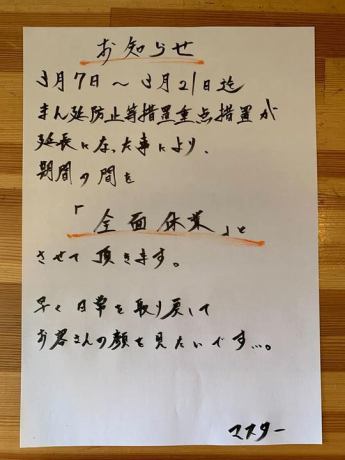 お知らせ
3月7日〜3月21日迄
まん延防止等措置重点措置が
延長になった事により、
期間の間を
「全面休業」と
させて頂きます。
早く日常を取り戻して
お客さんの顔を見たいです…。
マスター